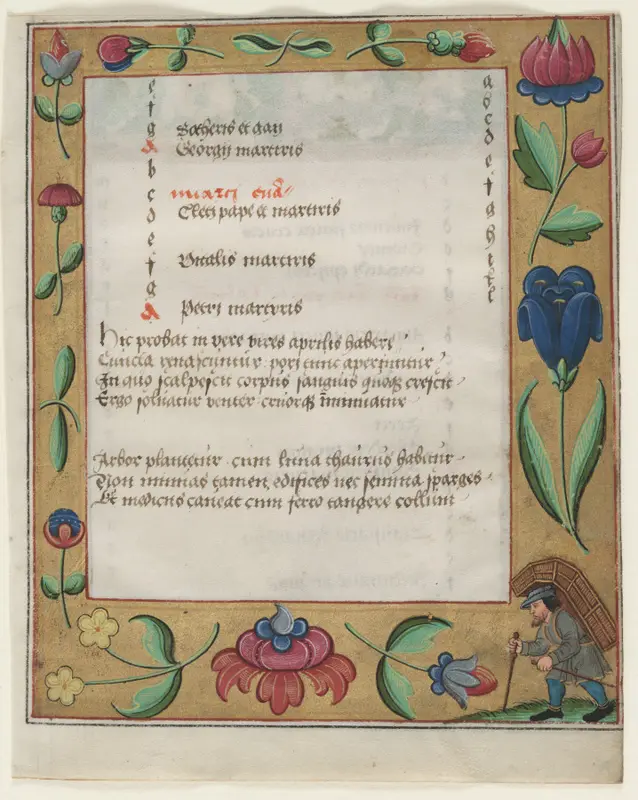 e a
f b
g Sotheris et gaij c
A Georgij martiris d
b e
c marci eua f
d Cleti pape et martiris g
e h
f Vitalis martiris i
g
A Petri martyris
Hic probat in vere vires aprilis habere
Cuncta renascuntur pori tunc aperiuntur
In quo scalpescit corpus sanguis quoqz crescit
Ergo soluatur venter cruorqz minuatur
Arbor plantetur cum luna thaurus habitur
Non minuas tamen edifices nec semina sparges
Et medicus caueat cum ferro tangere collum